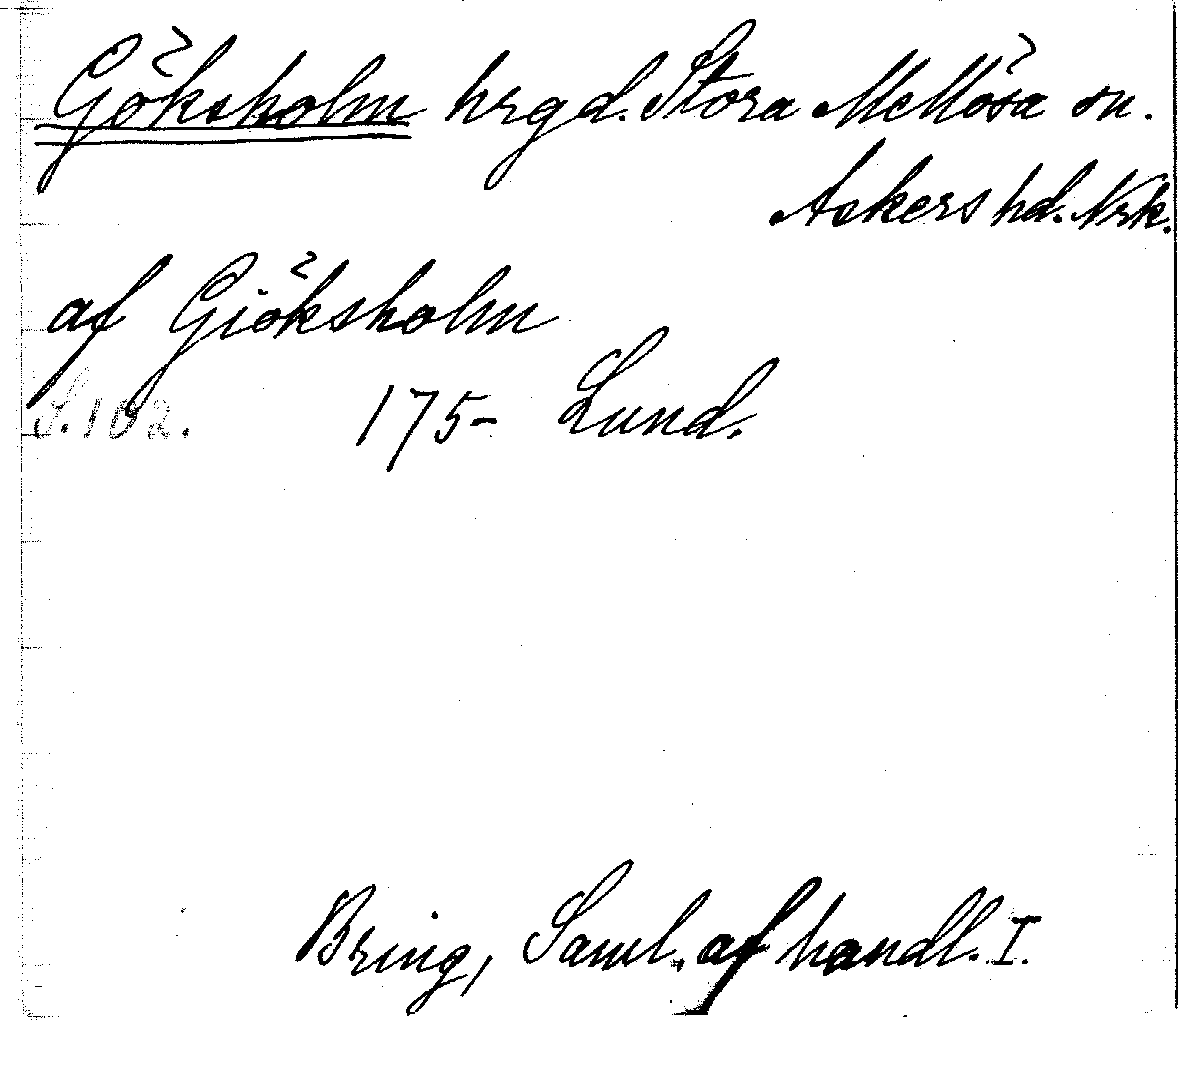 Göksholm hrgd. Stora Mellösa sn.
Askers hd. Nrk.
af Giöksholm
S. 102. 175- Lund.
Bring, Saml. af handl. I.